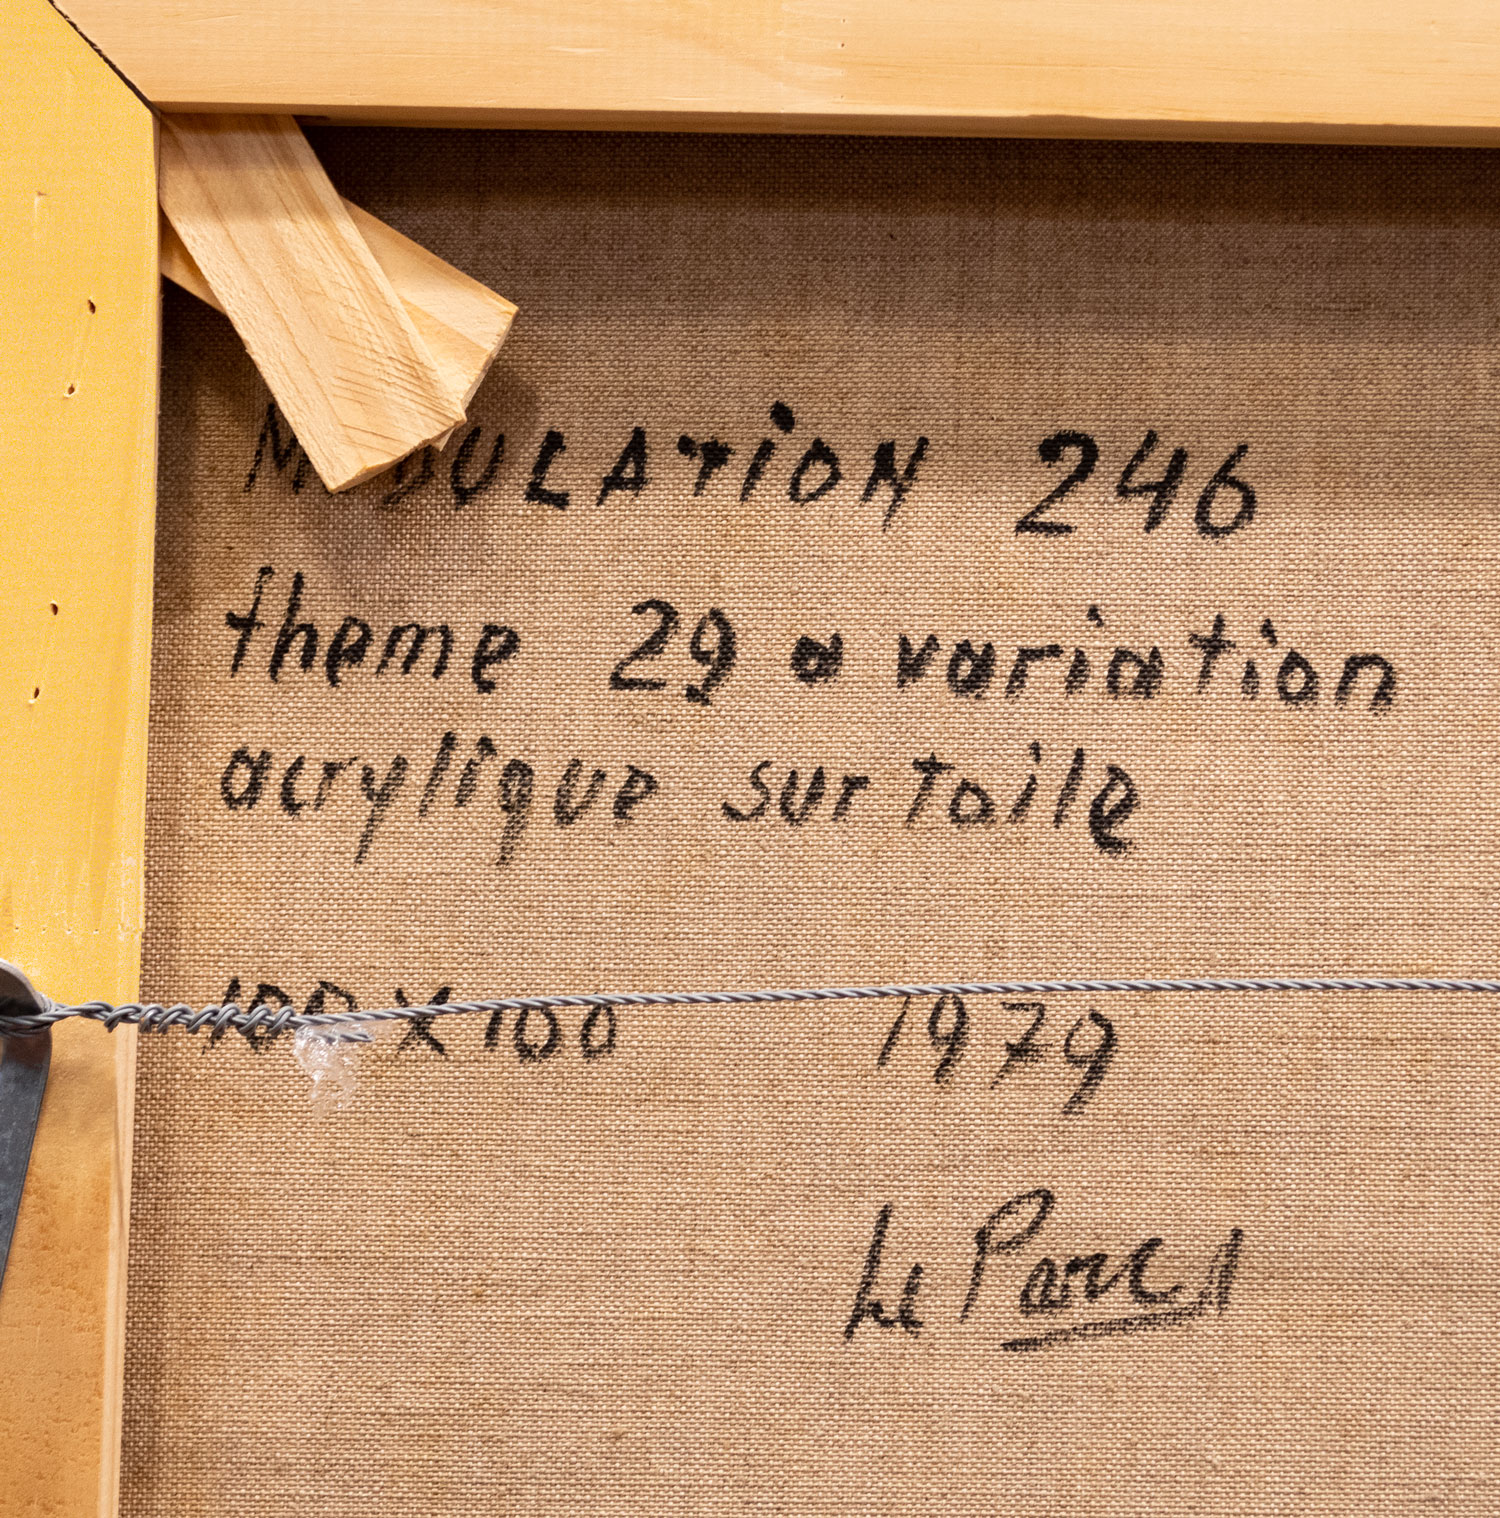 MODULATION 246
theme 29 a variation
acrylique sur toile
100 X 100 1979
Le Parc